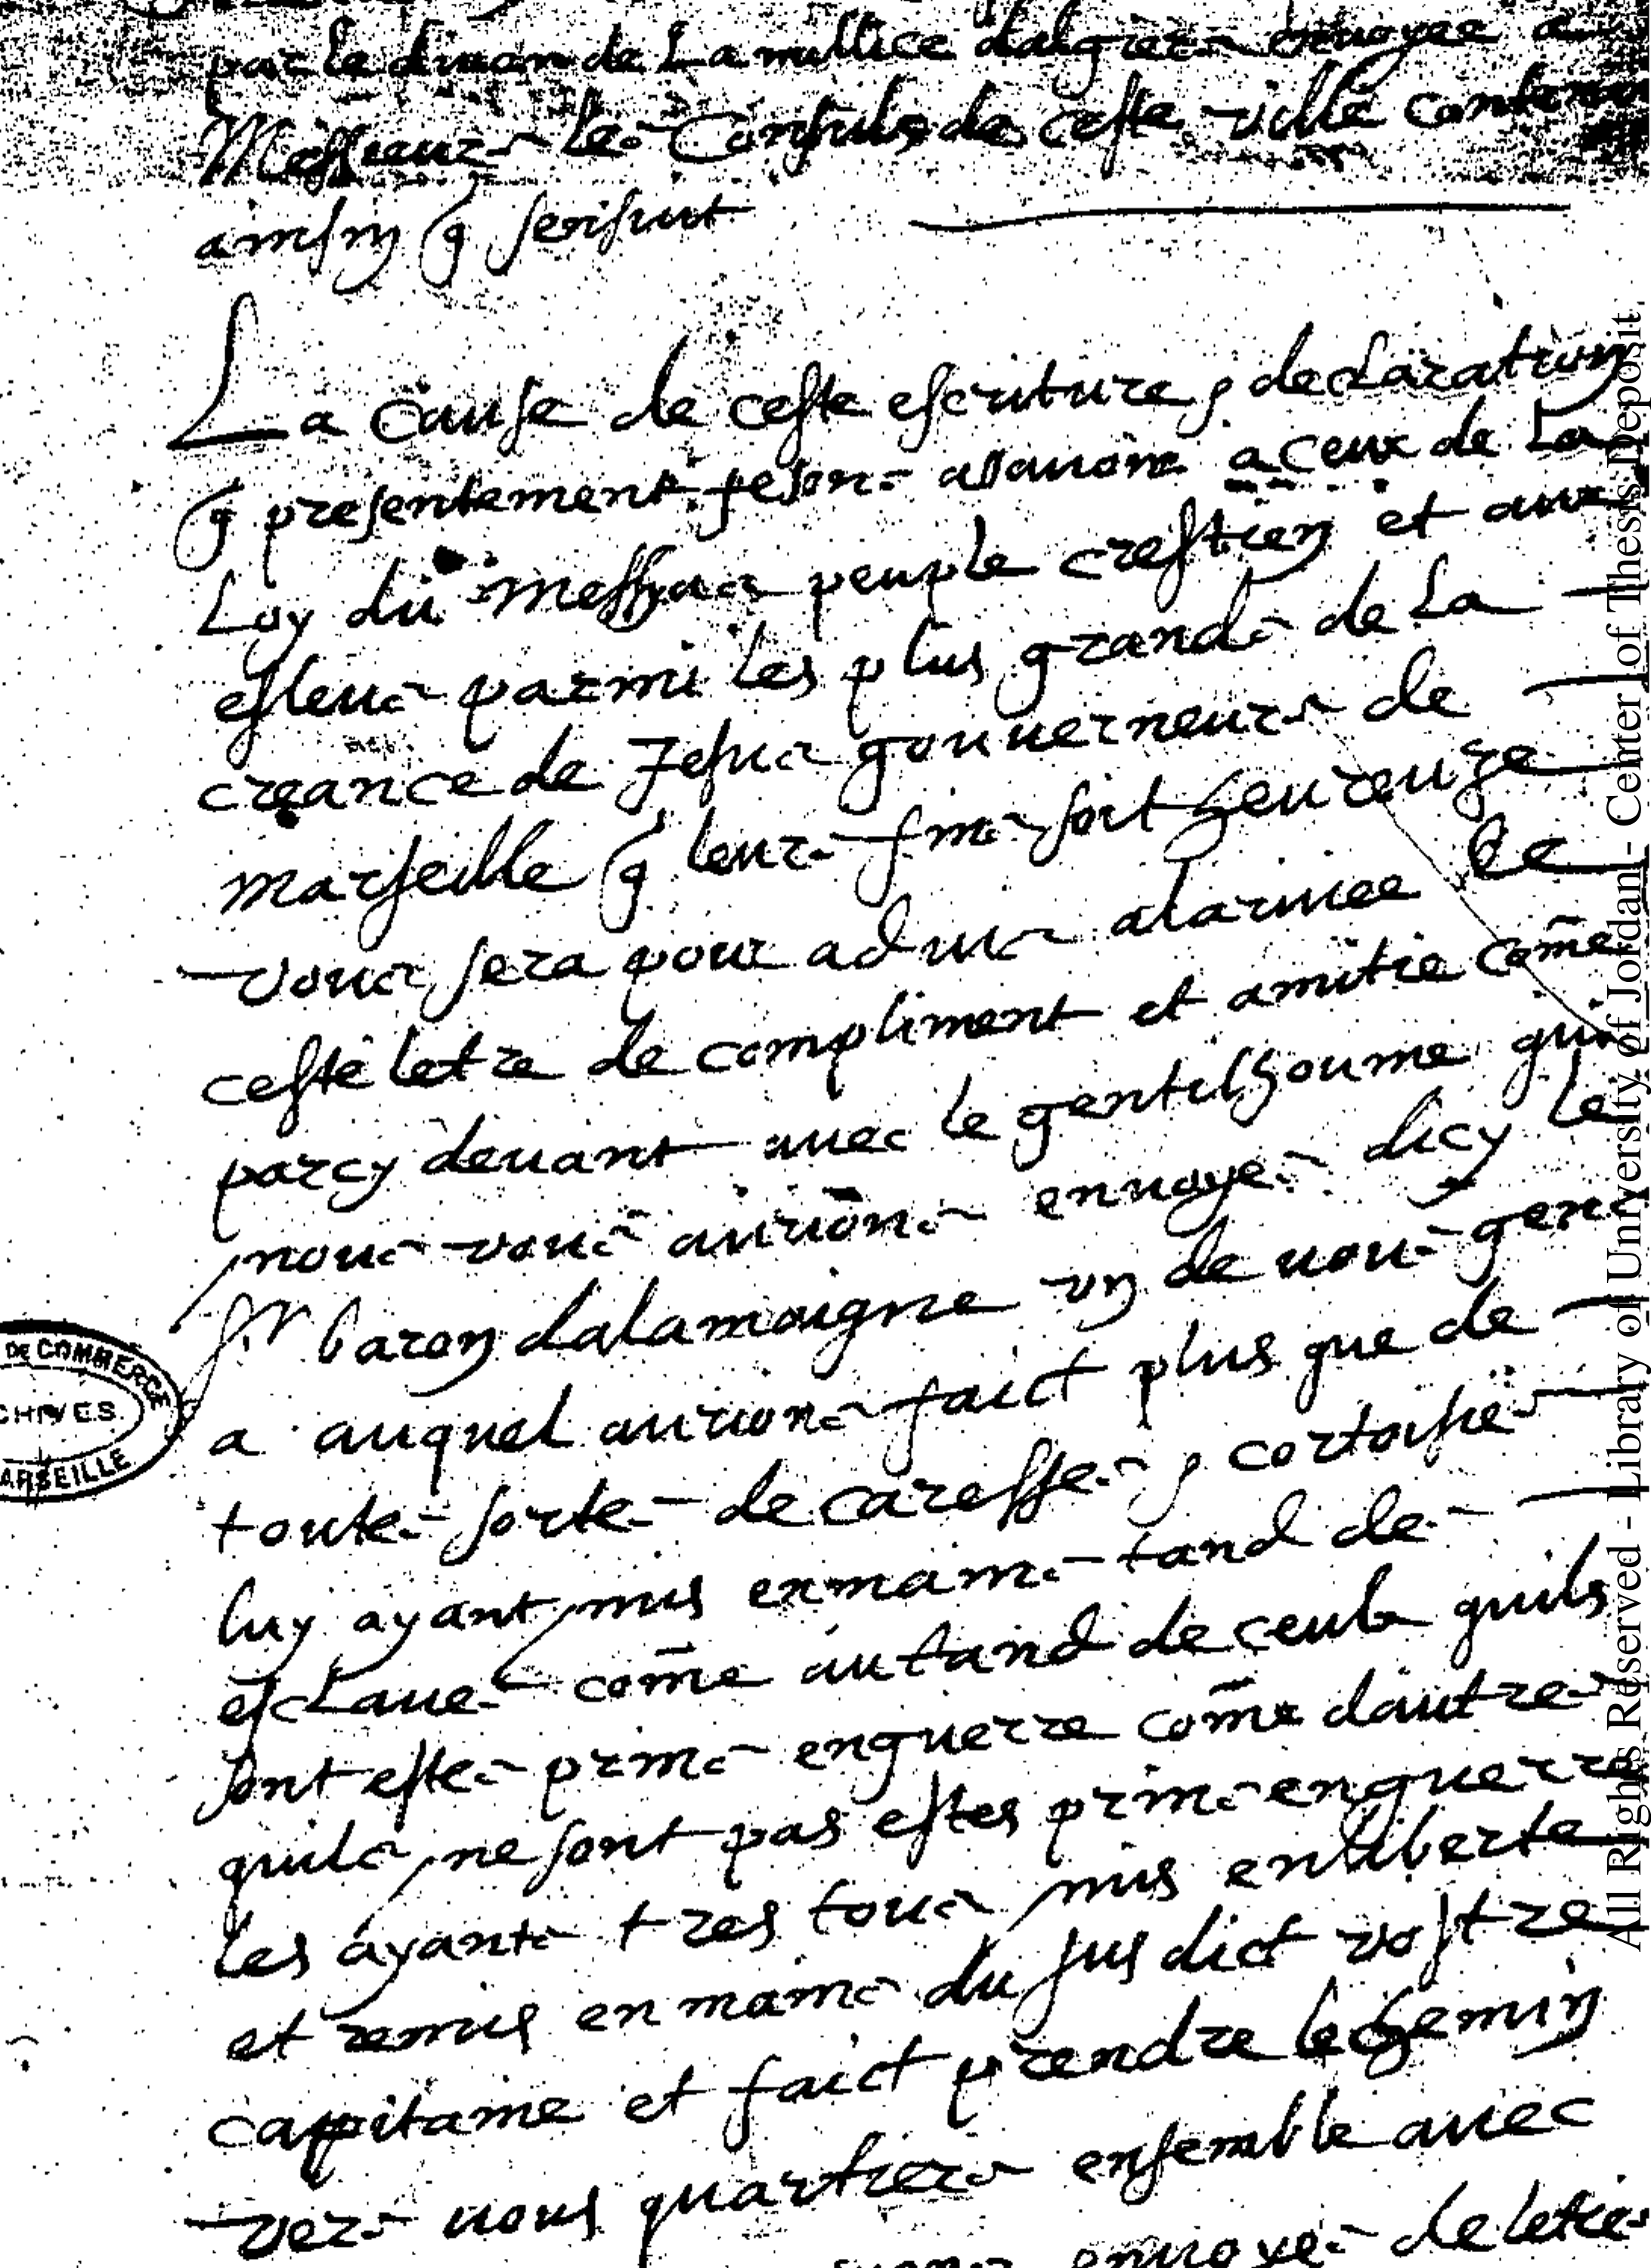 par le divan de La millice dalgiers envoyee a
Messieurs les Consuls de ceste ville contenant
ainsin q senssuit
La cause de ceste escriture & declaration
q presentement fesons assavoir a ceux de La
Loy du messyas peuple crestien et aux
esleus parmi les plus grands de La
creance de Jesus gouverneurs de
marseille q leurs fins soit heureuze
vous sera pour advis alarivee de
ceste letre de compliment et amitie come
parcy devant avec le gentilhoume qui
nous vous avions envoyes dicy le
sr baron dalamaigne un de vous gens
a auquel avions faict plus que de
toutes sortes de caresses & cortoisies
luy ayant mis enmains tand de
esclaves come autand de ceulx quils
sont estes prins enguerre come dautres
quils ne sont pas estes prins enguerre
les ayants tres tous mis enliberte
et remis en mains du susdict vostre
cappitaine et faict prendre lechemin
vers vous quartiers ensemble avec
envoyes de letres
DE COMMERCE
CHIVES
ARSEILLE
All Rights Reserved - Library of University of Jordan - Center of Thesis Deposit